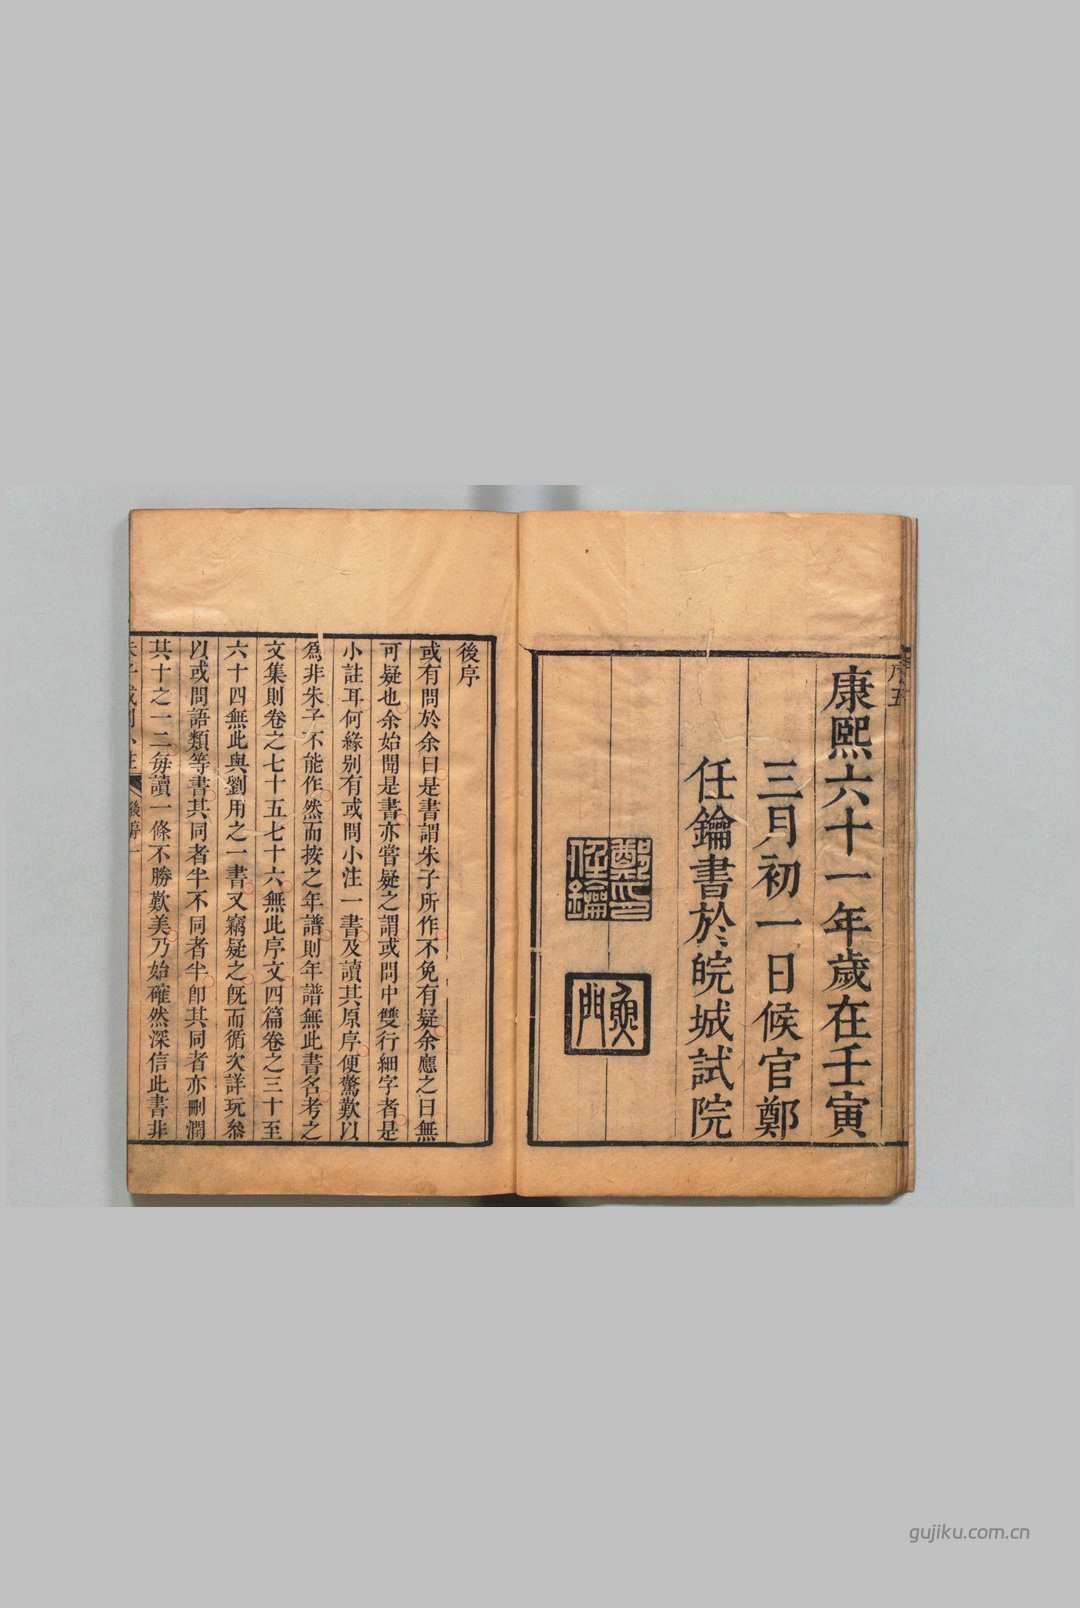 序五
康熙六十一年歲在壬寅
三月初一日候官鄭
任鑰書於皖城試院
鄭印任鑰
魚門
後序
或有問於余曰是書謂朱子所作不免有疑余應之曰無
可疑也余始聞是書亦嘗疑之謂或問中雙行細字者是
小註耳何緣别有或問小注一書及讀其原序便驚歎以
為非朱子不能作然而按之年譜則年譜無此書名考之
文集則卷之七十五七十六無此序文四篇卷之三十至
六十四無此與劉用之一書又竊疑之旣而循次詳玩叅
以或問語類等書其同者半不同者半卽其同者亦刪潤
其十之一二每讀一條不勝歎美乃始確然深信此書非
朱子或問小註
後序一
gujiku.com.cn